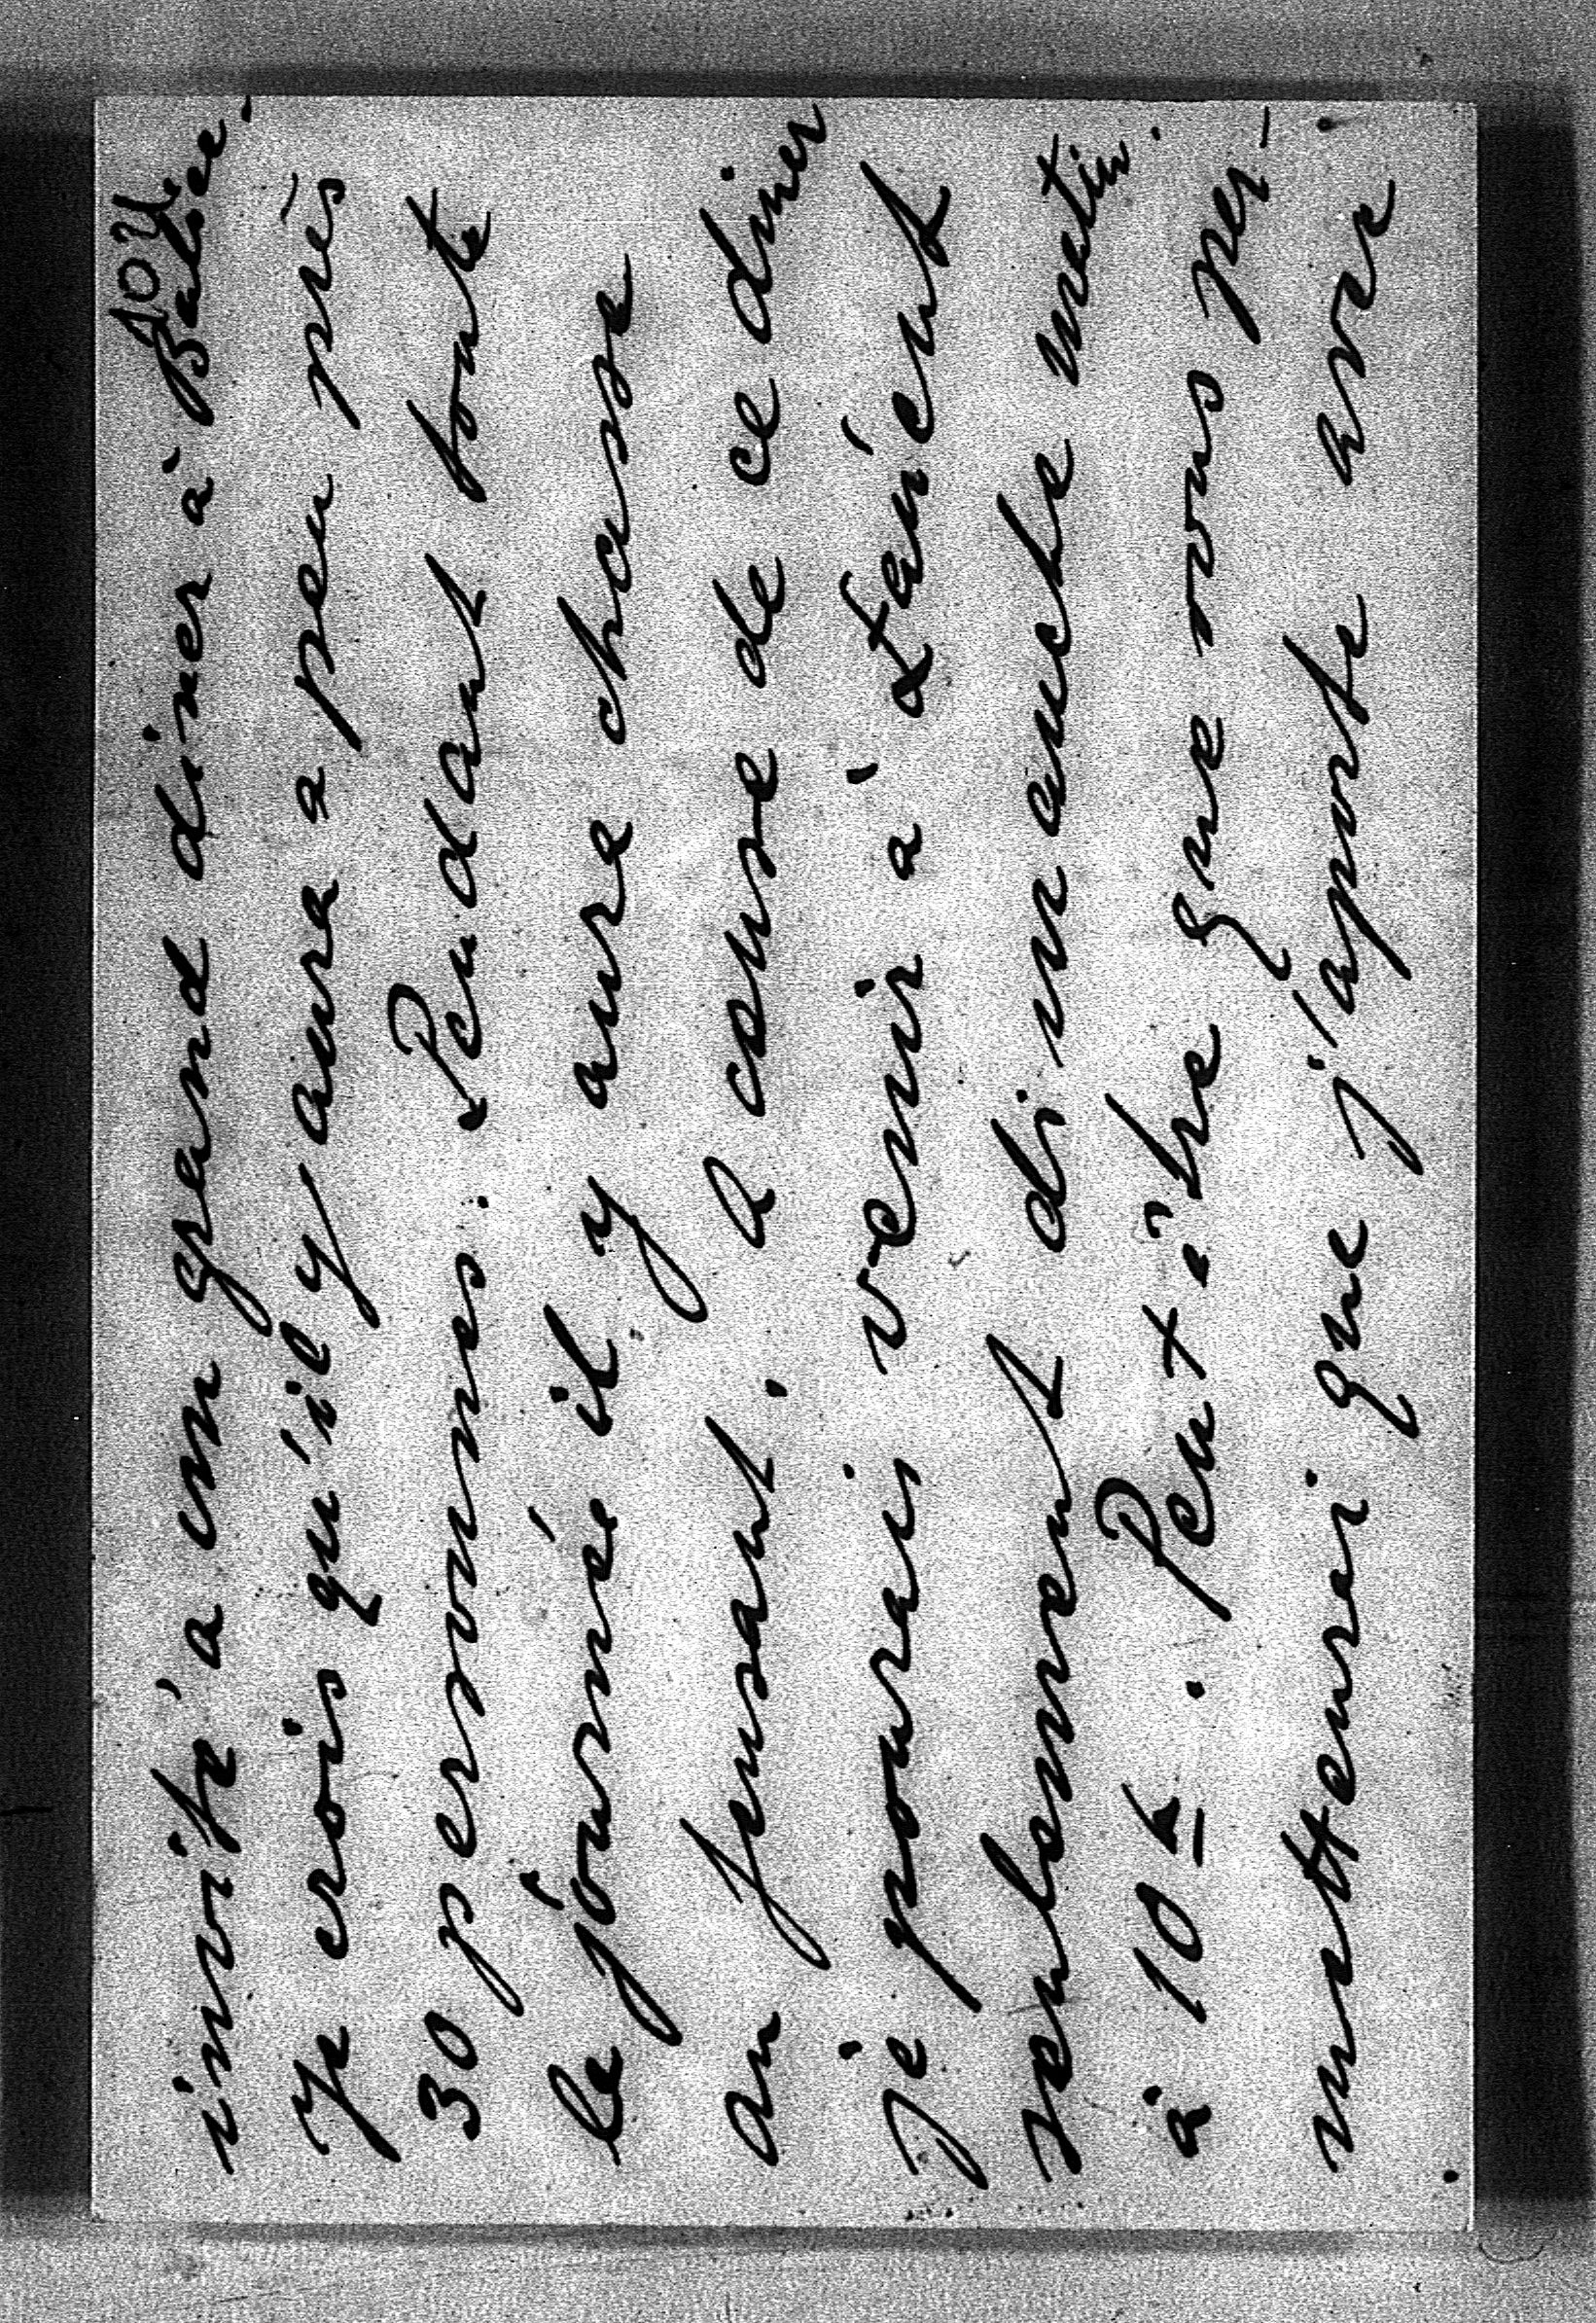 104
invité à un grand diner à
Je crois qu'il y aura a peu près
30 personnes. Pendant toute
le journé il y aura chasse
au fusant. A cause de ce diner
je pourais venir à
seulement dimanche matin.
à 10 h. Peut être que vous per-
metterai que j'aporte avec